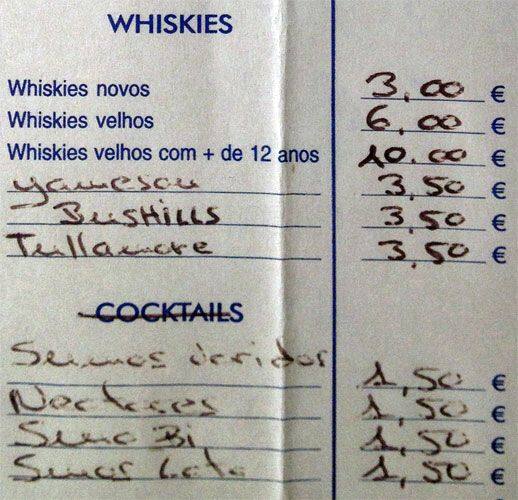 WHISKIES
Whiskies novos 3,00 €
Whiskies velhos 6,00 €
Whiskies velhos com + de 12 anos 10.00 €
yameson 3,50 €
BusHiLLS 3,50 €
Tullamore 3,50 €
COCKTAILS
Sumos 1,50 €
Nectares 1,50 €
Sumo Bi 1,50 €
Sumos Lata 1,50 €